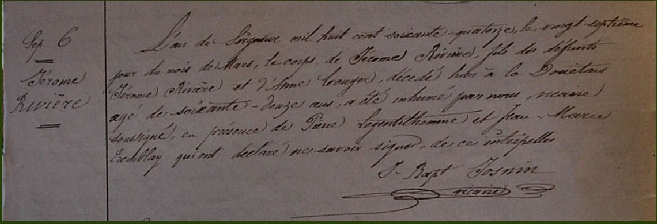 Sep. 6
Jérome
Rivière
L'an de Seigneur mil huit cent soixante quatorze, le vingt-septième
jour du mois de Mars, le corps de Jérome Rivière, fils des défunts
Jérome Rivière et d'Anne décédé hier à la
agé de soixante-douze ans, a été inhumé par nous, vicaire
soussigné, en présence de Legentilhomme et Jean-Marie
Tremblay qui ont déclaré ne savoir signer, de ce intérpellés
J-Bapt Josnin
vicaire